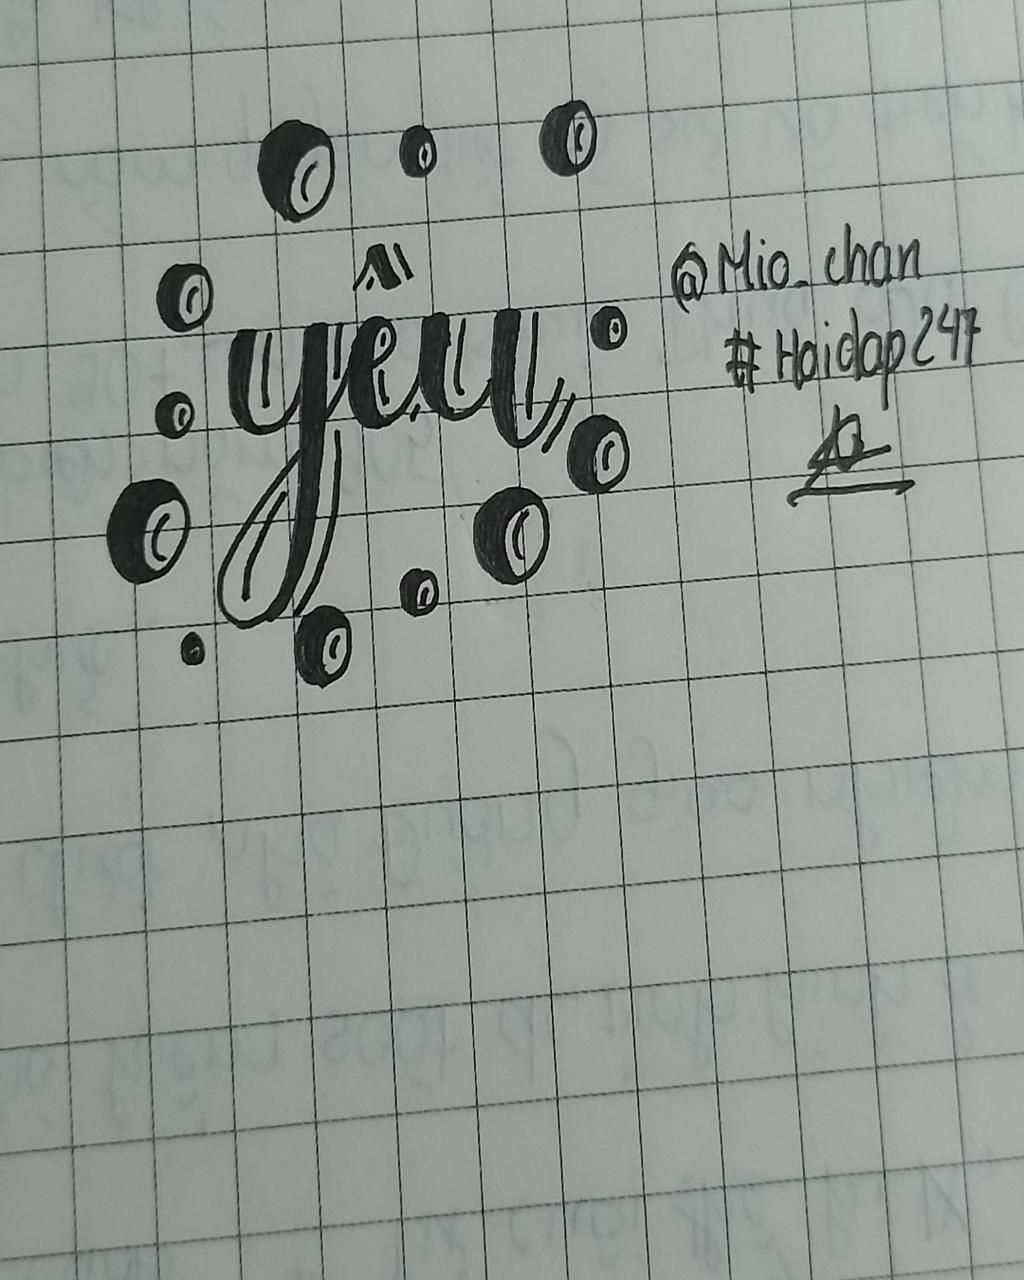 yêu
@Mio_chan
#Hoidap247